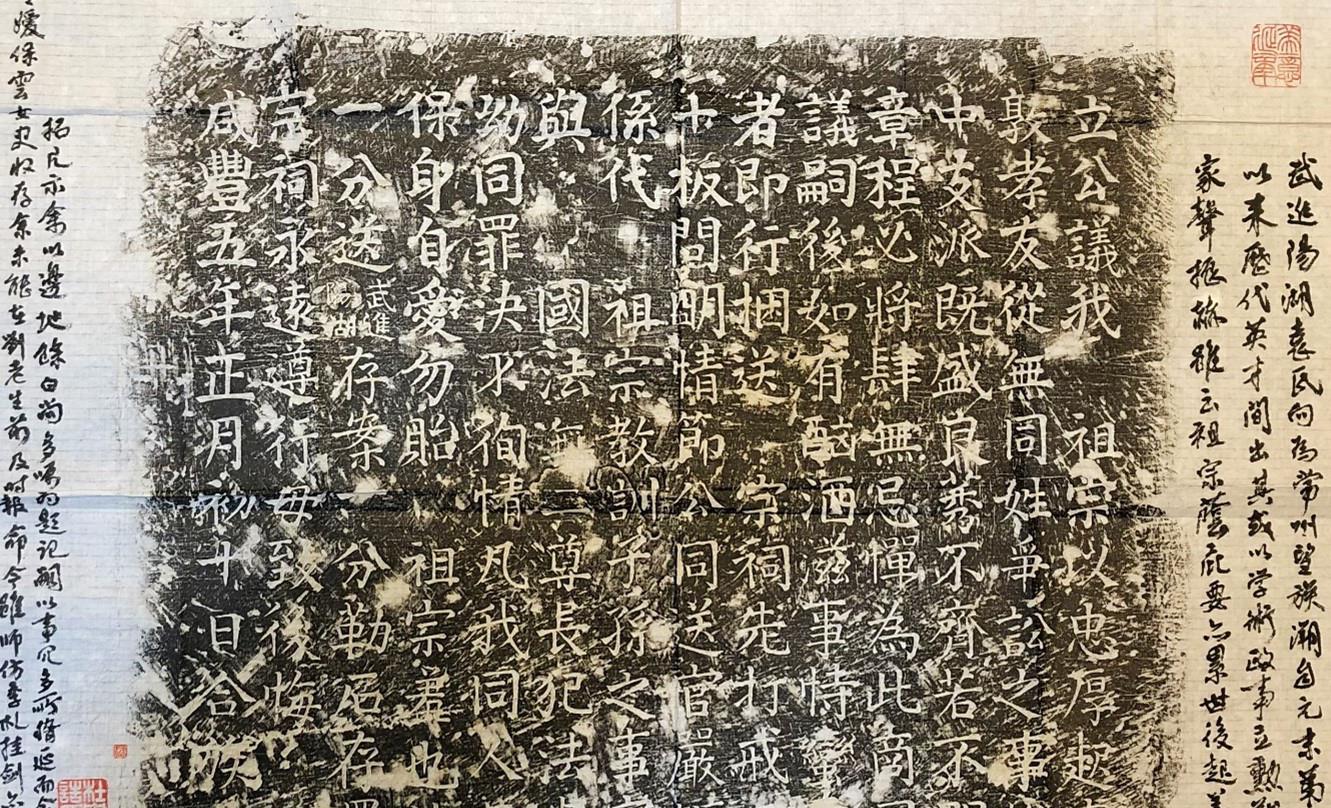 武進陽湖袁氏向為常州望族溯自元末
以來歷代英才間出其或以学術政事立勲
家聲振赫雖云祖宗蔭庇要亦累世後起
立公議我 祖宗以忠厚起
敦孝友從無同姓爭訟之事
中支派既盛良莠不齊若不
章程必將肆無忌憚為此商
議嗣後如有酗酒滋事恃蠻
者即行捆送 宗祠先打戒
十板問明情節公同送官嚴
係代 祖宗教訓子孫之事
與 國法 二尊長犯法
幼同罪決不徇情凡我同人
保身自愛勿貽 祖宗羞也
一分送武進陽湖存案一分勒石存
宗祠永遠遵行毋致後悔
咸豐五年正月初十日合族
拓片示余以邊地餘白尚多嘱為題記嗣以事冗多所脩延而
媛保雲女史收存余未能在劉老生前及时報命今雖師仿季札挂劍